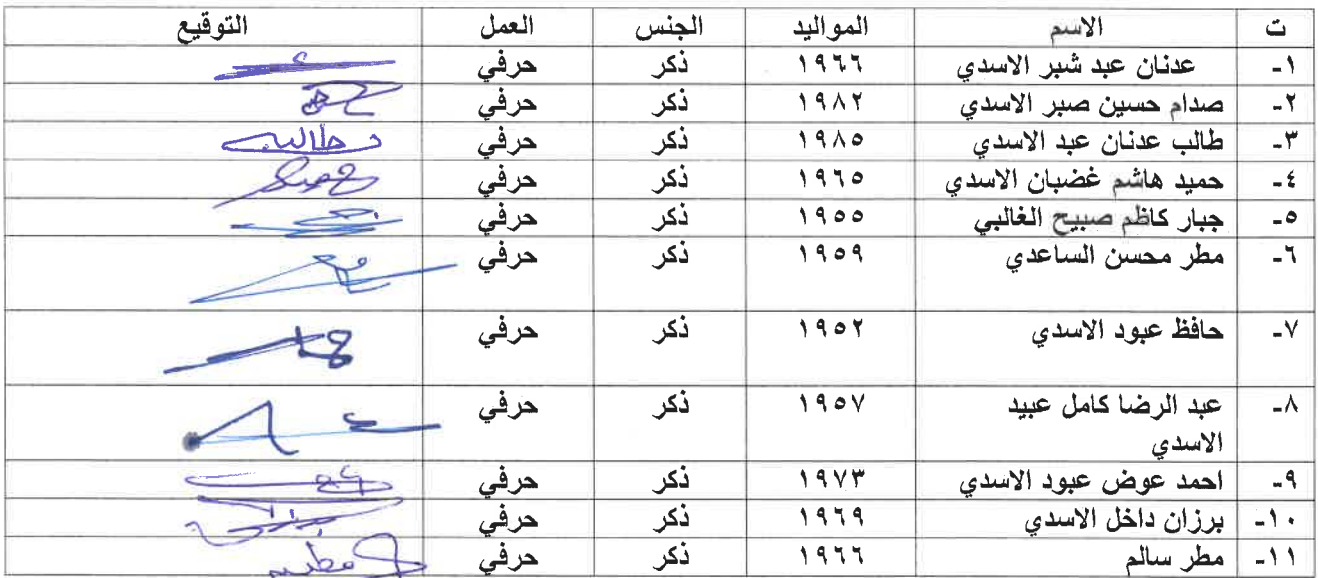 ت الاسم المواليد الجنس العمل التوقيع
١- عدنان عبد شبر الاسدي ١٩٦٦ ذكر حرفي
٢- صدام حسين صبر الاسدي ١٩٨٢ ذكر حرفي
٣- طالب عدنان عبد الاسدي ١٩٨٥ ذكر حرفي طالب
٤- حميد هاشم غضبان الاسدي ١٩٦٥ ذكر حرفي
٥- جبار كاظم صبيح الغالبي ١٩٥٥ ذكر حرفي
٦- مطر محسن الساعدي ١٩٥٩ ذكر حرفي
٧- حافظ عبود الاسدي ١٩٥٢ ذكر حرفي
٨- عبد الرضا كامل عبيد ١٩٥٧ ذكر حرفي
الاسدي
٩- احمد عوض عبود الاسدي ١٩٧٣ ذكر حرفي
١٠- برزان داخل الاسدي ١٩٦٩ ذكر حرفي
١١- مطر سالم ١٩٦٦ ذكر حرفي